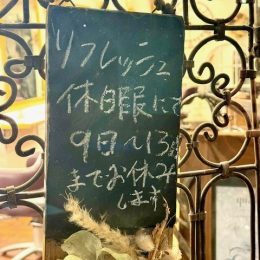 リフレッシュ
休暇にて
9日〜13日
までお休み
します